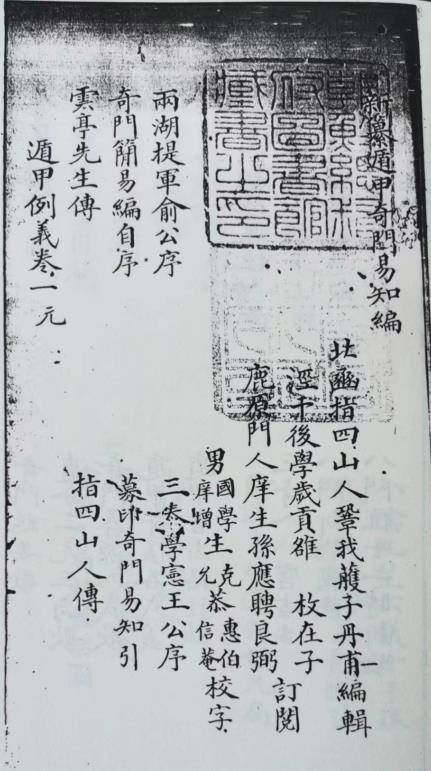 新纂遁甲奇門易知編
北豳指四山人鞏我䕶子丹甫編輯
涇干後學歲貢雒　枚在子
訂閱
鹿原門人庠生孫應聘良弼
男國學生克恭惠伯
庠增生允信菴
校字
兩湖提軍俞公序
三秦學憲王公序
奇門簡易編自序
募印奇門易知引
雲亭先生傳
指四山人傳
遁甲例義卷一元